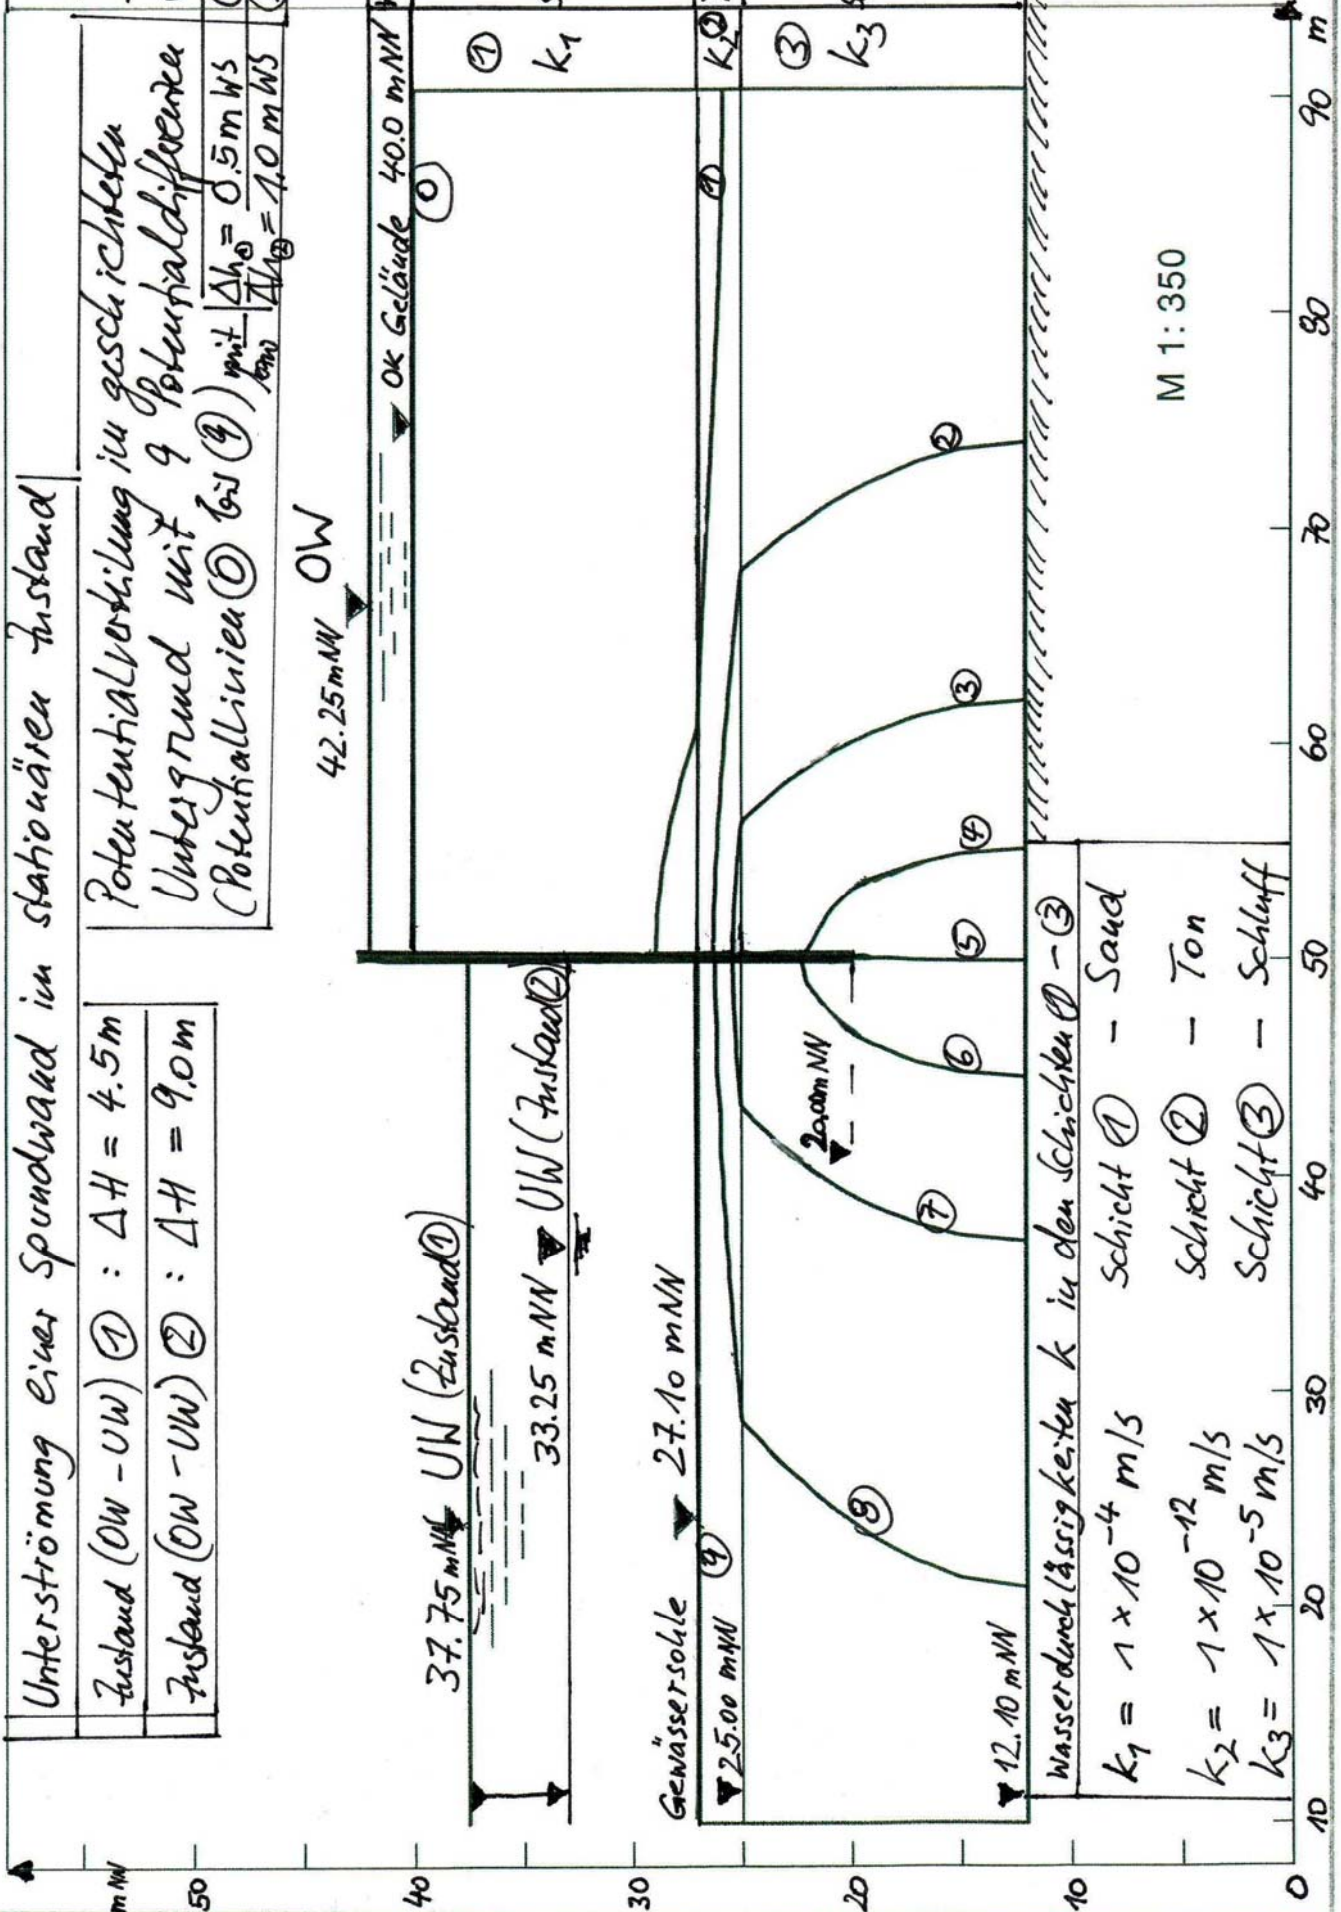 Unterströmung einer Spundwand im stationären Zustand
Zustand (OW - UW) ① : ΔH = 4.5m
Zustand (OW - UW) ② : ΔH = 9.0m
Potentialverteilung im geschichteten
Untergrund mit 9 Potentialdifferenzen
(Potentiallinien ⓪ bis ⑨) mit Δh① = 0.5m WS
bzw Δh② = 1.0 m WS
42.25 mNN OW
OK Gelände 40.0 mNN
37.75 mNN UW (Zustand①)
33.25 mNN UW (Zustand②)
Gewässersohle 27.10 mNN
25.00 mNN
20.00mNN
12.10 mNN
① k1
k2 ②
③ k3
⓪
①
②
③
④
⑤
⑥
⑦
⑧
⑨
Wasserdurchlässigkeiten k in den Schichten ① - ③
k1 = 1 x 10⁻⁴ m/s Schicht ① - Sand
k2 = 1 x 10⁻¹² m/s Schicht ② - Ton
k3 = 1 x 10⁻⁵ m/s Schicht ③ - Schluff
M 1:350
m NN
50
40
30
20
10
0
10 20 30 40 50 60 70 80 90 m